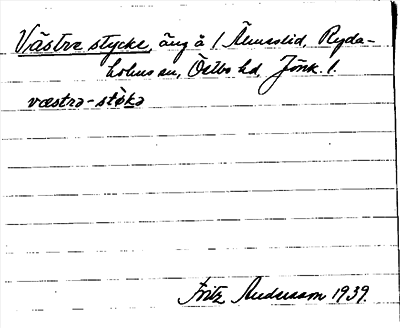 Västra stycke, äng å 1 Älmsslid, Ryda-
holms sn, Östbo hd, Jönk. l.
væstrə-støkə
Fritz Andersson 1939.